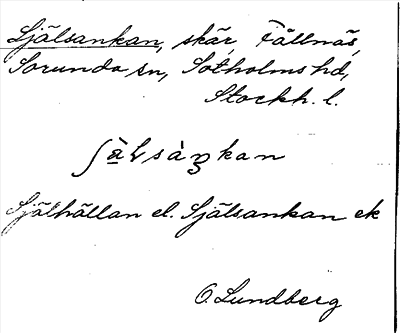 Själsankan, skär, Fållnäs,
Sorunda sn, Sotholms hd,
Stockh. l.
ʃä̀lsàŋkan
Själhällan el. Själsankan ek
O. Lundberg